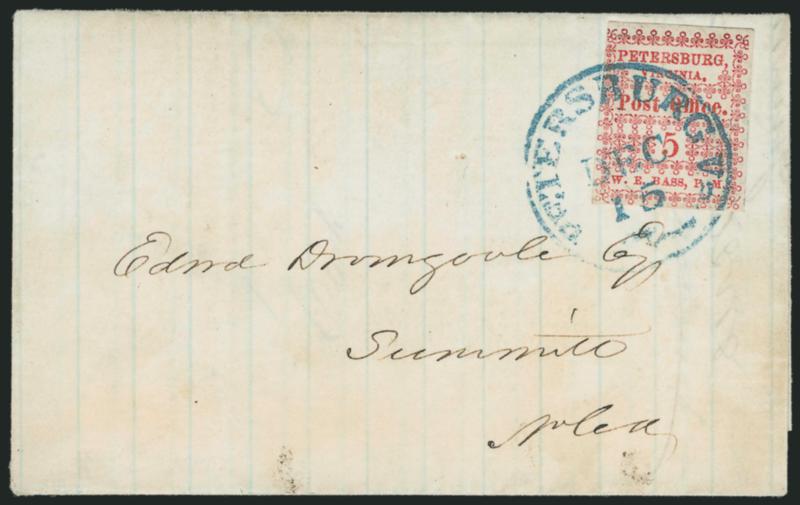 PETERSBURG,
VIRGINIA.
Post Office.
5
W. E. BASS, P. M.
PETERSBURG VA.
DEC
15
Edwd Dromgoole Esq
Summitt
No Ca